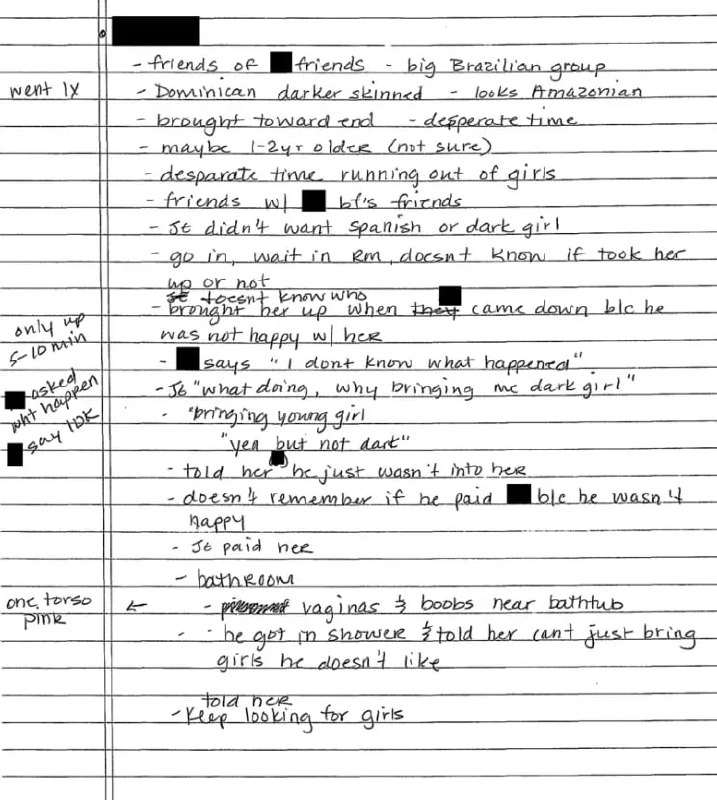 - friends of friends - big Brazilian group
went 1x
- Dominican darker skinned - looks Amazonian
- brought toward end - desperate time
- maybe 1-2yr older (not sure)
- desparate time running out of girls
- friends w/ bf's friends
- JE didn't want spanish or dark girl
- go in, wait in Rm, doesnt know if took her
up or not
JE doesnt know who
- brought her up when they came down b/c he
was not happy w/ her
only up
5-10 min
- says "I dont know what happened"
asked
wht happen
say IDK
- JE "what doing, why bringing me dark girl"
- "bringing young girl
"yea but not dark"
- told her he just wasn't into her
- doesn't remember if he paid b/c he wasn't
happy
- JE paid her
- bathroom
one torso
pink
←
- vaginas & boobs near bathtub
- he got in shower & told her cant just bring
girls he doesn't like
told her
- Keep looking for girls